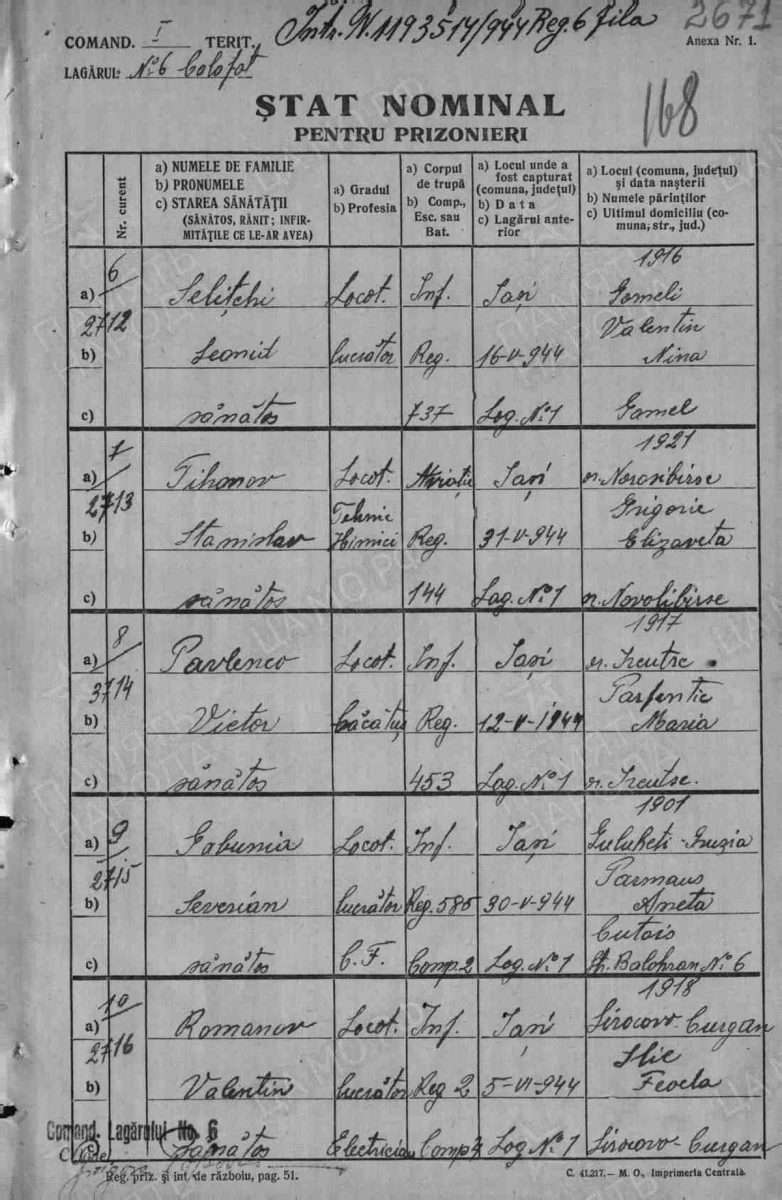 2671
Intr. N. 1193514/944 Reg. 6 fila
COMAND. I TERIT.
Anexa Nr. 1.
LAGĂRUL: No 6 Calafat
168
ȘTAT NOMINAL
PENTRU PRIZONIERI
Nr. curent
a) NUMELE DE FAMILIE
b) PRONUMELE
c) STAREA SĂNĂTĂȚII
(SĂNĂTOS, RĂNIT; INFIR-
MITĂȚILE CE LE-AR AVEA)
a) Gradul
b) Profesia
a) Corpul
de trupă
b) Comp.,
Esc. sau
Bat.
a) Locul unde a
fost capturat
(comuna, județul)
b) Data
c) Lagărul ante-
rior
a) Locul (comuna, județul)
și data nașterii
b) Numele părinților
c) Ultimul domiciliu (co-
muna, str., jud.)
6 1916
a) Selițchi Locot. Inf. Iași Gomeli
2712 Valentin
b) Leonid lucrător Reg. 16-V-944 Nina
c) sănătos 737 Lag. No 1 Gamel
7 1921
a) Tihonov Locot. Aviație Iași or. Novosibirsc
2713 Tehnic Grigorie
b) Stanislav Himici Reg. 31-V-944 Elizaveta
c) sănătos 144 Lag. No 1
8 1917
a) Pavlenco Locot. Inf. Iași
3714 Parfentie
b) Victor Reg. 12-V-1944 Maria
c) sănătos 453 Lag. No 1
9 1901
a) Gabunia Locot. Inf. Iași Guluheti-Gruzia
2715 Parmaus
b) Seversian lucrător Reg. 585 30-V-944 Aneta
Cutais
c) sănătos C. F. Comp. 2 Lag. No 1 Balohran No 6
10 1918
a) Romanov Locot. Inf. Iași Sirocovo-Curgan
2716 Ilie
b) Valentin lucrător Reg 2 5-VI-944 Feocla
Comand. Lagărului No. 6
sănătos Electrician Comp. 4 Lag No 1 Sirocovo-Curgan
Reg. priz. și int. de războiu, pag. 51.
C. 41.217.— M. O., Imprimeria Centrală.